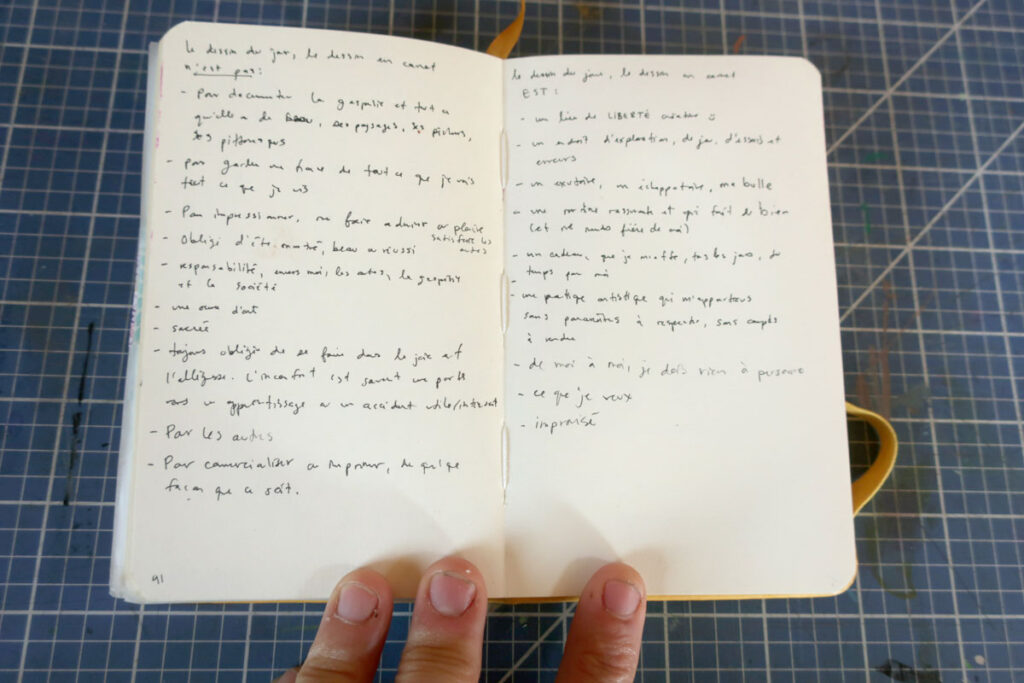 le dessin du jour, le dessin en carnet
n'est pas:
- Pour documenter la gaspésie et tout ce
qu'elle a de beau, ses paysages, ses pêcheurs,
ses pittoresques
- pour garder une trace de tout ce que je vais
tout ce que je vis
- Pour impressionner, me faire admirer or plaire
satisfaire les
autres
- Obligé d'être montré, beau ou réussi
- responsabilité, envers moi, les autres, la gaspésie
et la société
- une œuvre d'art
- sacrée
- toujours obligé de se faire dans la joie et
l'allégresse. L'inconfort est souvent une porte
vers un apprentissage ou un accident utile/intéressant
- Pour les autres
- Pour comercialiser ou imprimer, de quelque
façon que ce soit.
91
le dessin du jour, le dessin en carnet
EST:
- un lieu de LIBERTÉ
- un endroit d'exploration, de jeu, d'essais et
erreurs
- un exutoire, un échappatoire, ma bulle
- une routine rassurante et qui fait du bien
(et me rends fière de moi)
- un cadeau, que je m'offre, tous les jours, du
temps pour moi
-
- une pratique artistique qui m'appartiens
sans paramètres à respecter, sans comptes
à rendre
- de moi à moi, je dois rien à personne
- ce que je veux
- improvisé